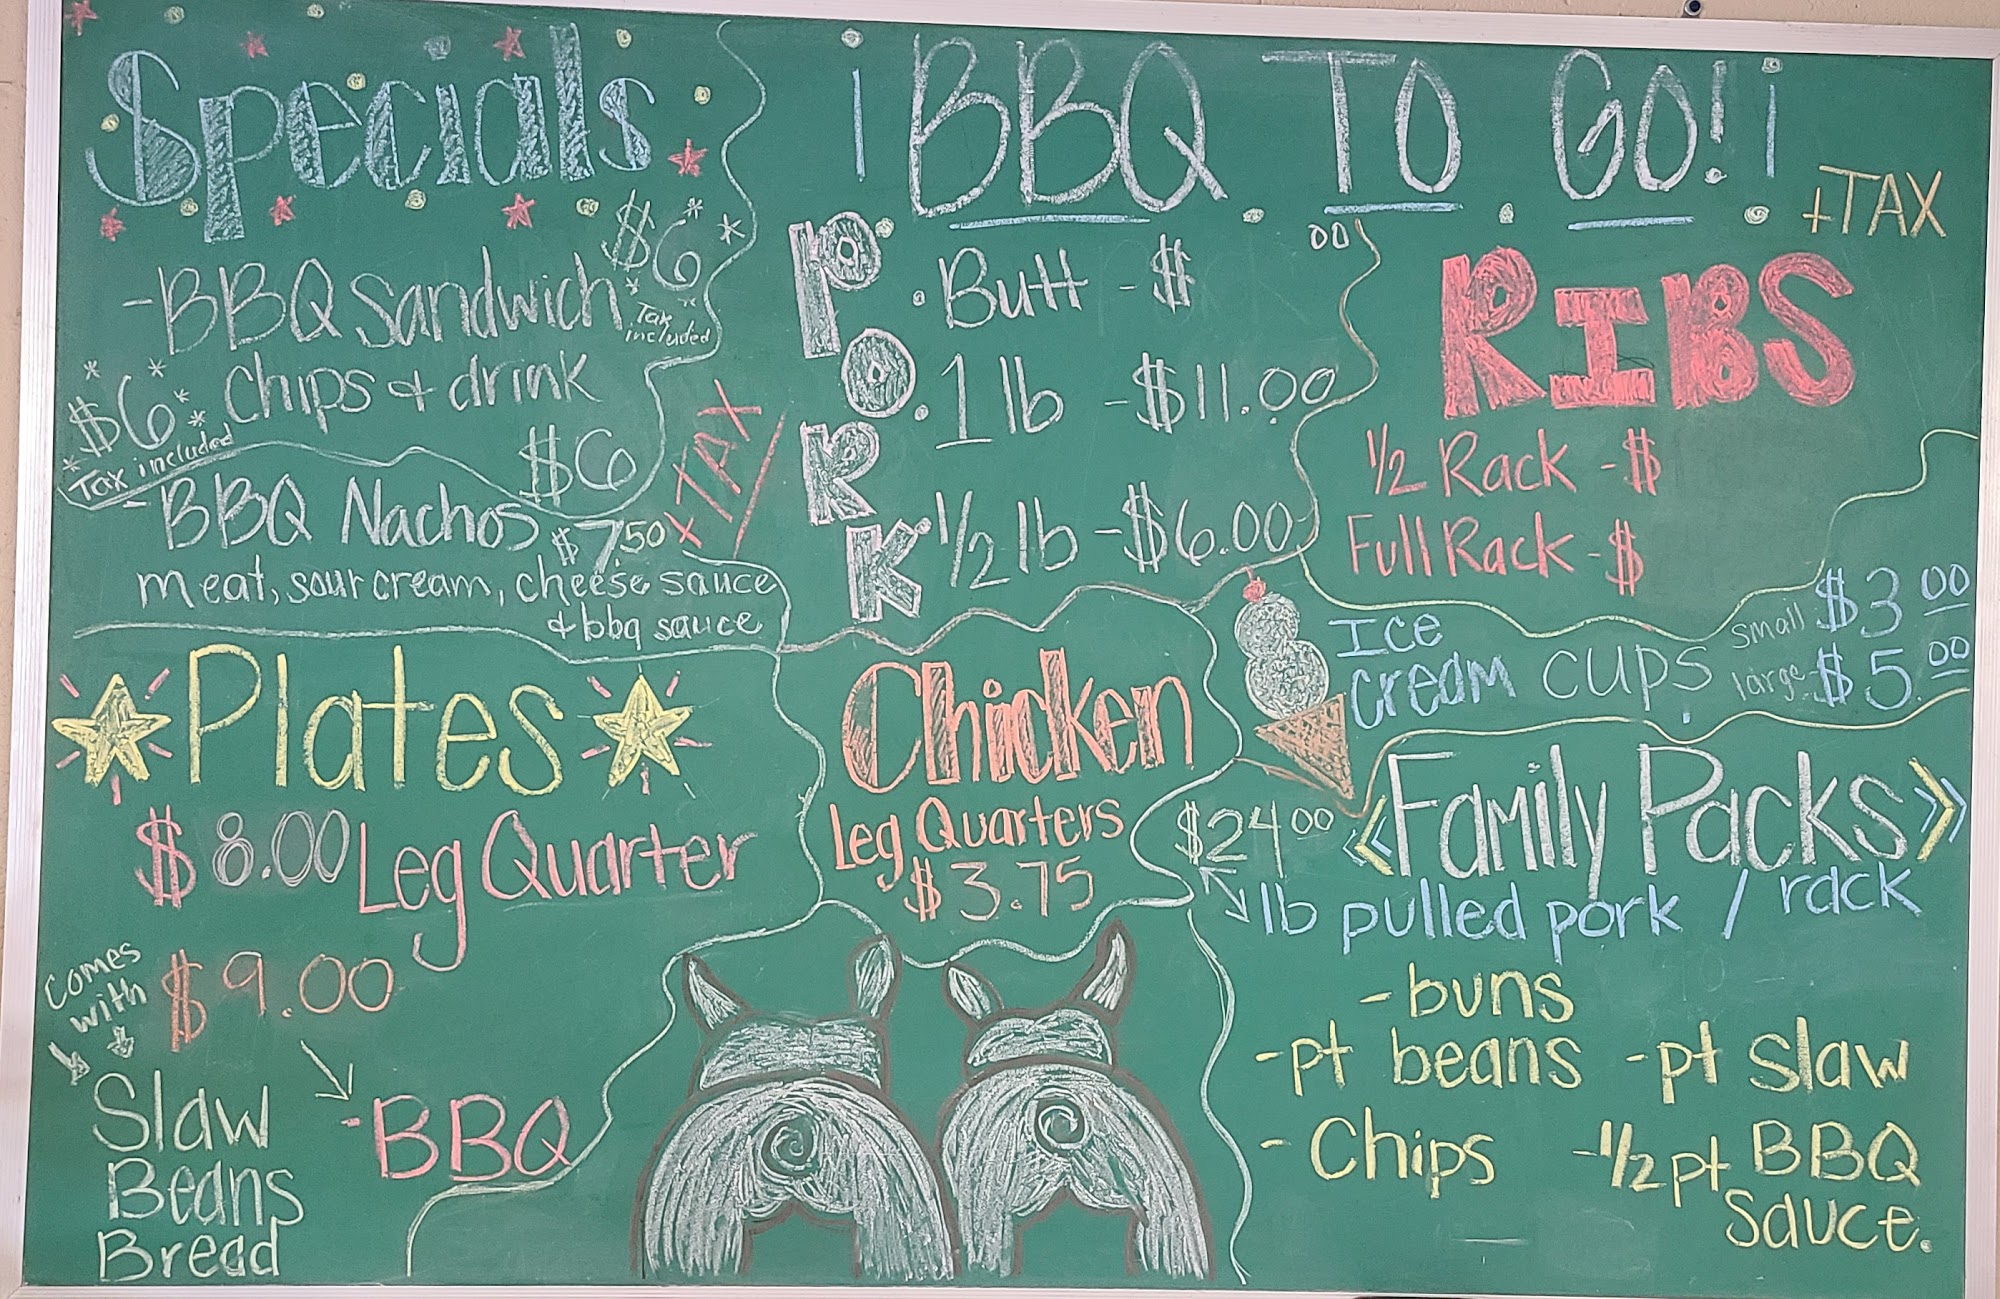 Specials
$6
-BBQ Sandwich
Tax included
Chips & drink
$6
Tax included
$6
-BBQ Nachos $7.50
+TAX
meat, sour cream, cheese sauce
& bbq sauce
BBQ TO GO!
+TAX
PORK
. Butt - $
00
. 1 lb - $11.00
1/2 lb - $6.00
RIBS
1/2 Rack - $
Full Rack - $
Ice
Cream cups
small $3.00
large - $5.00
Plates
$8.00 Leg Quarter
Comes
with
$9.00
-BBQ
Slaw
Beans
Bread
Chicken
Leg Quarters
$3.75
$24.00
<<Family Packs>>
lb pulled pork / rack
- buns
- pt beans - pt slaw
- Chips - 1/2 pt BBQ
Sauce.